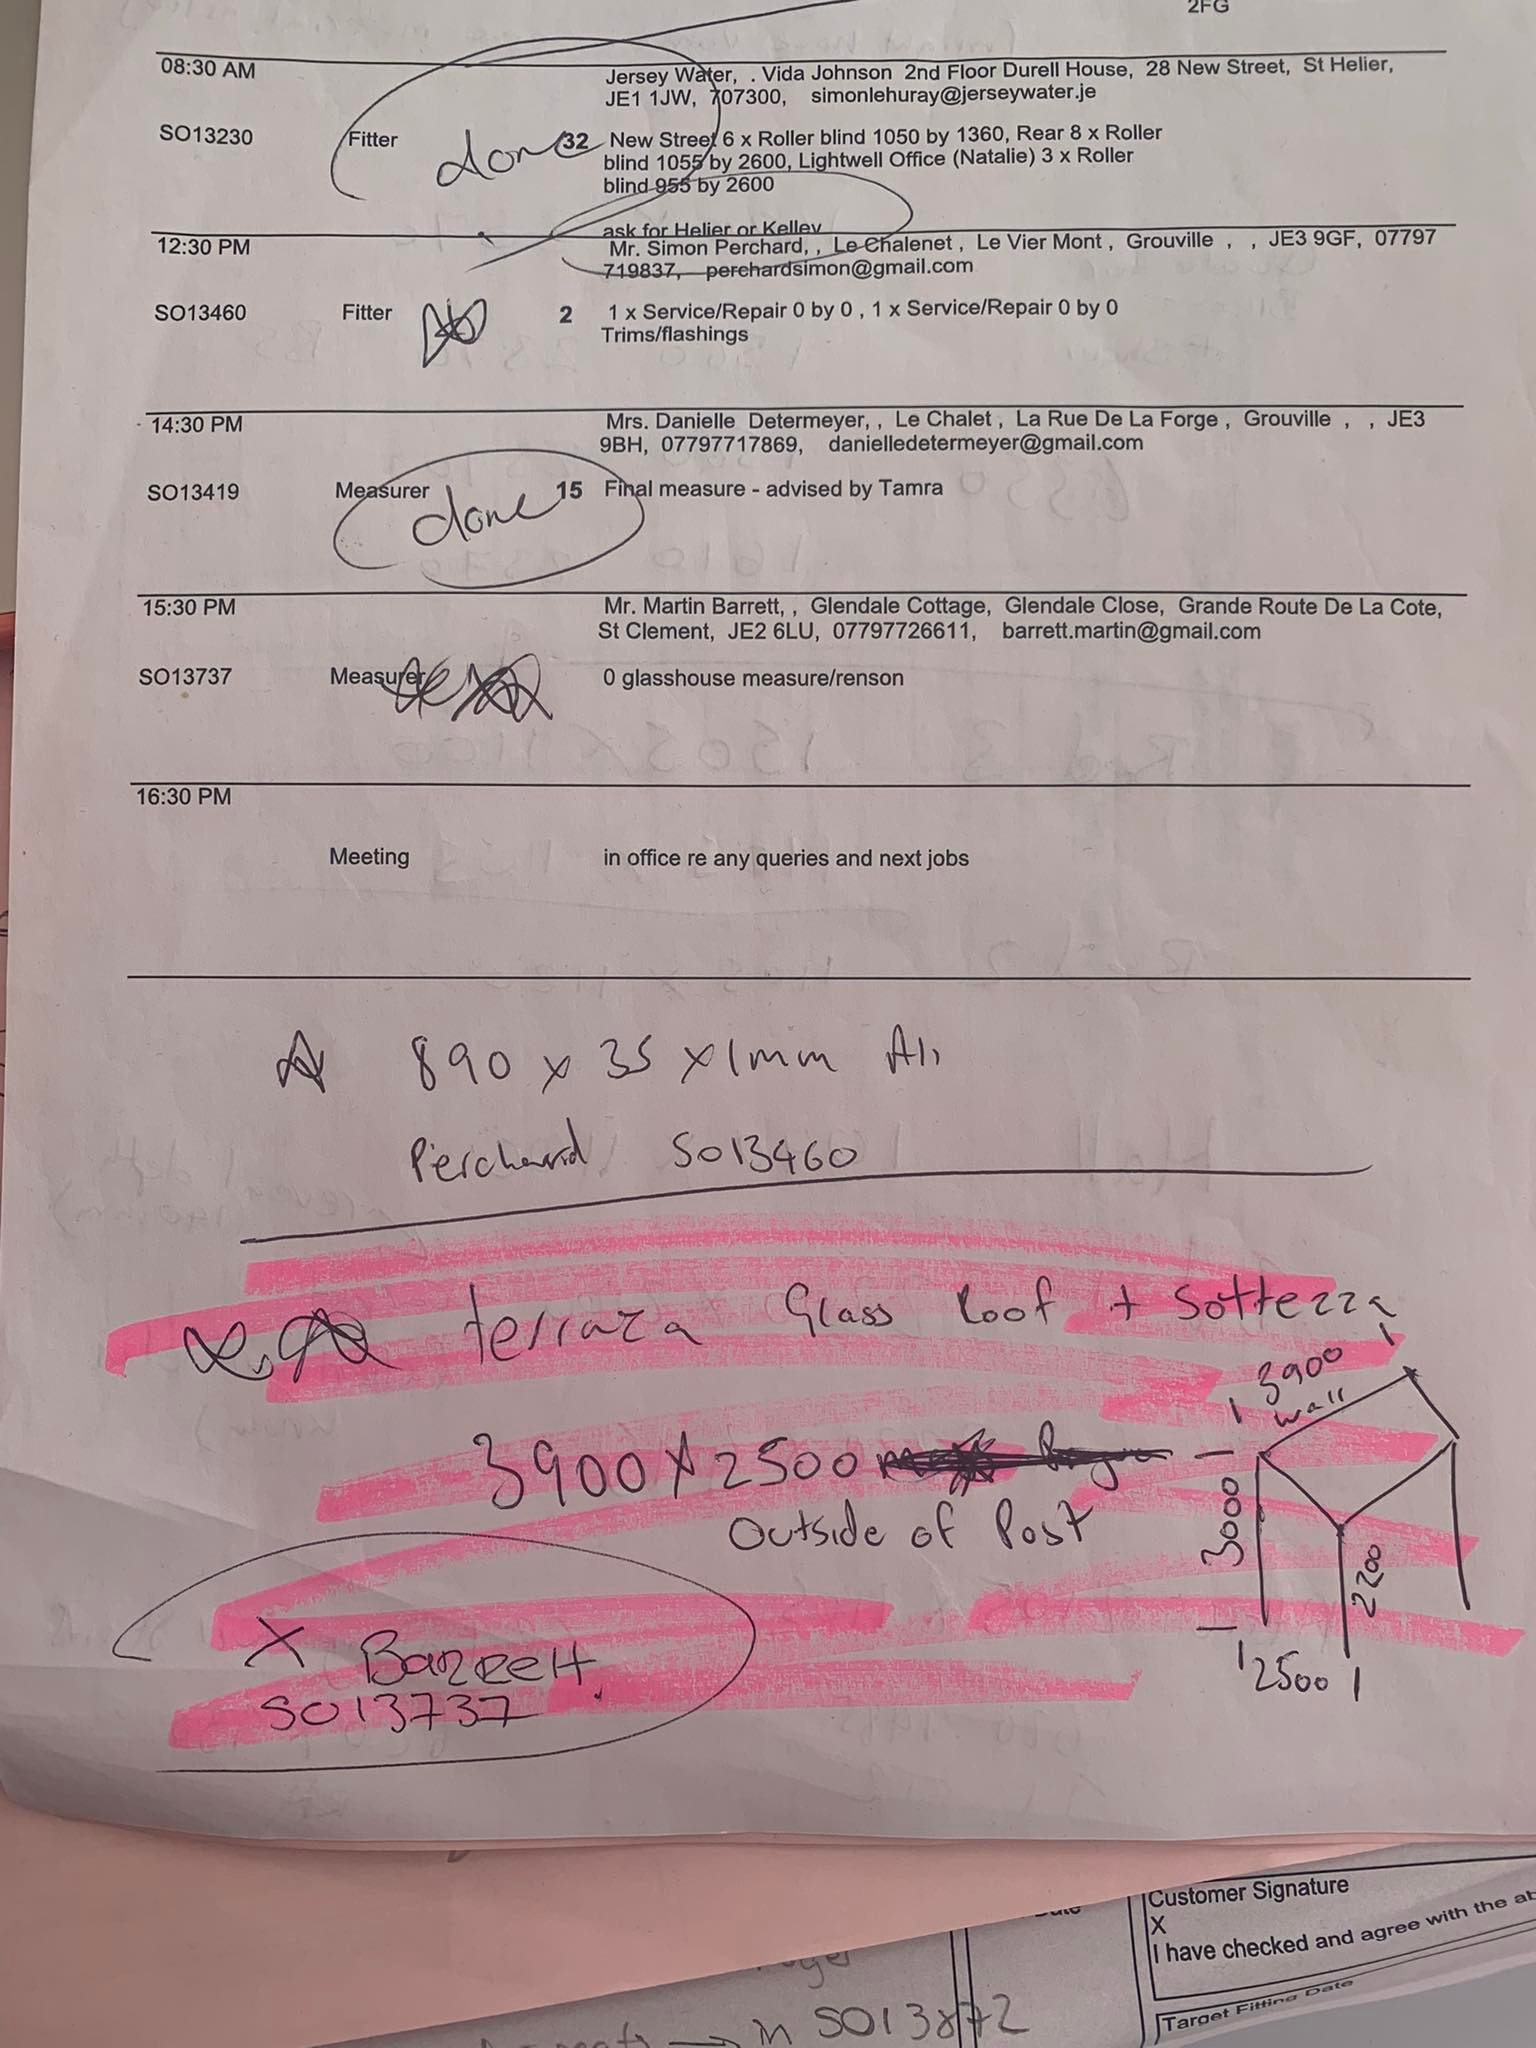 2FG
08:30 AM
Jersey Water, . Vida Johnson 2nd Floor Durell House, 28 New Street, St Helier,
JE1 1JW, 707300, simonlehuray@jerseywater.je
SO13230 Fitter done 32 New Street 6 x Roller blind 1050 by 1360, Rear 8 x Roller
blind 1055 by 2600, Lightwell Office (Natalie) 3 x Roller
blind 955 by 2600
ask for Helier or Kelley
12:30 PM Mr. Simon Perchard, , Le Chalenet , Le Vier Mont , Grouville , , JE3 9GF, 07797
719837, perchardsimon@gmail.com
SO13460 Fitter 2 1 x Service/Repair 0 by 0 , 1 x Service/Repair 0 by 0
Trims/flashings
14:30 PM Mrs. Danielle Determeyer, , Le Chalet , La Rue De La Forge , Grouville , , JE3
9BH, 07797717869, danielledetermeyer@gmail.com
SO13419 Measurer done 15 Final measure - advised by Tamra
15:30 PM Mr. Martin Barrett, , Glendale Cottage, Glendale Close, Grande Route De La Cote,
St Clement, JE2 6LU, 07797726611, barrett.martin@gmail.com
SO13737 Measurer 0 glasshouse measure/renson
16:30 PM
Meeting in office re any queries and next jobs
890 x 35 x 1mm Ali
Perchard SO13460
terraza Glass Roof + Sottezza
3900
wall
3900 x 2500
Outside of Post
3000
2200
2500
X Barrett
SO13737
Customer Signature
X
I have checked and agree with the
Target Fitting Date
in SO13872